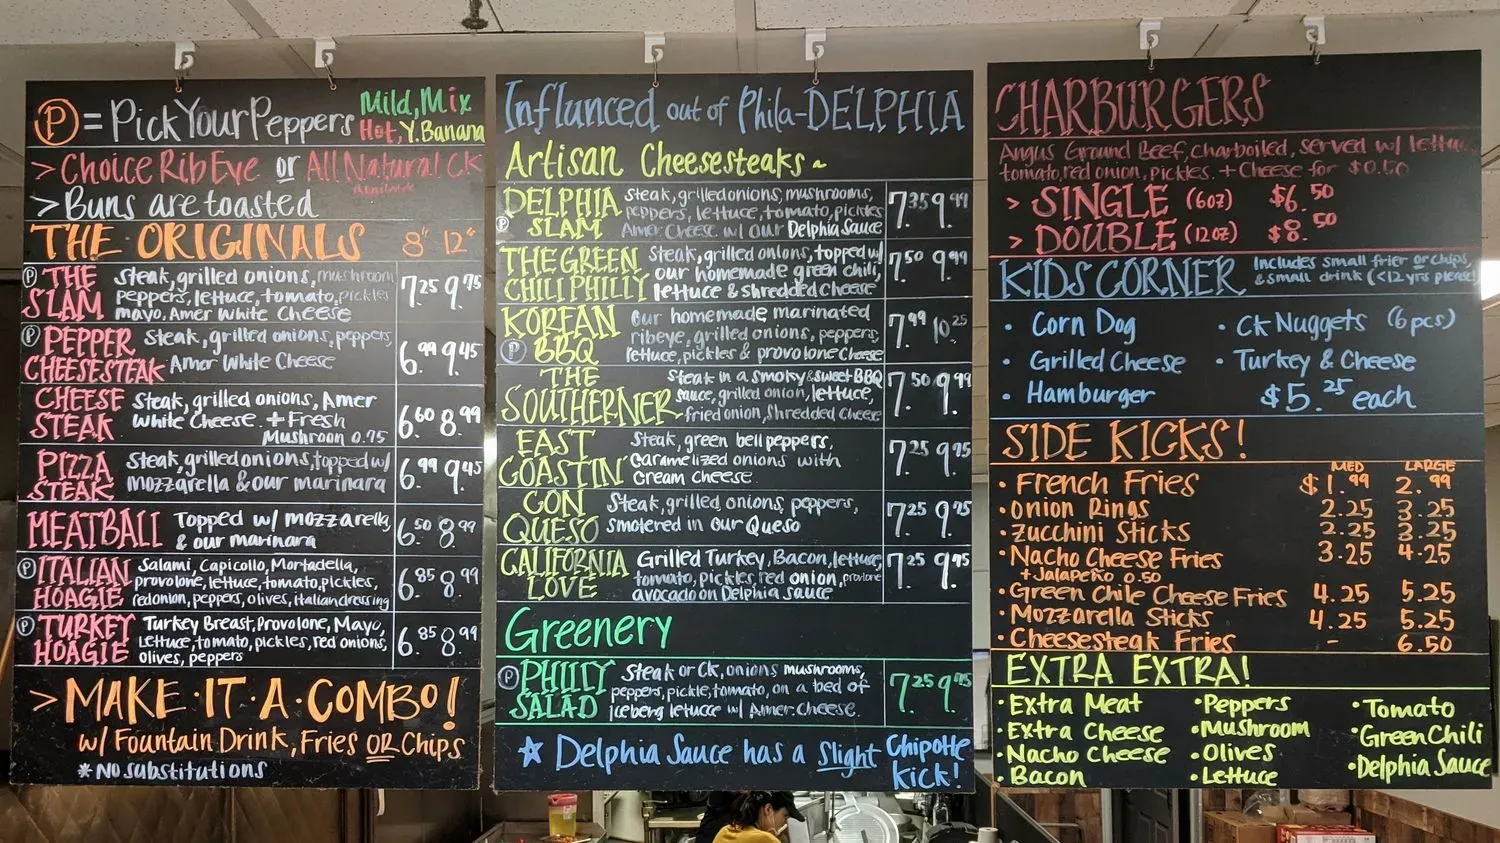 P = Pick Your Peppers Mild, Mix
Hot, Y. Banana
> Choice Rib Eye or All Natural CK
Available
> Buns are toasted
THE ORIGINALS 8" 12"
P THE SLAM
Steak, grilled onions, mushroom
peppers, lettuce, tomato, pickles
mayo, Amer White Cheese
7.25 9.75
P PEPPER CHEESESTEAK
Steak, grilled onions, peppers
Amer White Cheese
6.99 9.45
CHEESE STEAK
Steak, grilled onions, Amer
White Cheese. + Fresh
Mushroom 0.75
6.60 8.99
PIZZA STEAK
Steak, grilled onions, topped w/
mozzarella & our marinara
6.99 9.45
MEATBALL
Topped w/ mozzarella,
& our marinara
6.50 8.99
P ITALIAN HOAGIE
Salami, Capicollo, Mortadella,
provolone, lettuce, tomato, pickles,
red onion, peppers, olives, italian dressing
6.85 8.99
P TURKEY HOAGIE
Turkey Breast, Provolone, Mayo,
Lettuce, tomato, pickles, red onions,
olives, peppers
6.85 8.99
> MAKE·IT·A·COMBO!
w/ Fountain Drink, Fries OR Chips
* No substitutions
Influnced out of Phila-DELPHIA
Artisan Cheesesteaks ~
P DELPHIA SLAM
Steak, grilled onions, mushrooms,
peppers, lettuce, tomato, pickles
Amer Cheese w/ our Delphia Sauce
7.35 9.99
THE GREEN CHILI PHILLY
Steak, grilled onions, topped w/
our homemade green chili,
lettuce & shredded cheese
7.50 9.99
KOREAN P BBQ
Our homemade marinated
ribeye, grilled onions, peppers,
lettuce, pickles & provolone cheese
7.99 10.25
THE SOUTHERNER
Steak in a smoky & sweet BBQ
sauce, grilled onion, lettuce,
fried onion, shredded cheese
7.50 9.99
EAST COASTIN'
Steak, green bell peppers,
caramelized onions with
cream cheese.
7.25 9.95
CON QUESO
Steak, grilled onions, peppers,
smotered in our Queso
7.25 9.75
CALIFORNIA LOVE
Grilled Turkey, Bacon, lettuce,
tomato, pickles, red onion, provlone
avocado on Delphia sauce
7.25 9.95
Greenery
P PHILLY SALAD
Steak or Ck, onions mushrooms,
peppers, pickle, tomato, on a bed of
iceberg lettuce w/ Amer. Cheese.
7.25 9.75
★ Delphia Sauce has a slight Chipotle
kick!
CHARBURGERS
Angus Ground Beef, charboiled, served w/ lettuce
tomato, red onion, pickles. + Cheese for $0.50
> SINGLE (6oz) $6.50
> DOUBLE (12oz) $8.50
KIDS CORNER Includes small frier or chips,
& small drink (<12 yrs please)
· Corn Dog · Ck Nuggets (6 pcs)
· Grilled Cheese · Turkey & Cheese
· Hamburger $5.25 each
SIDE KICKS!
MED LARGE
· French Fries $1.99 2.99
· Onion Rings 2.25 3.25
· Zucchini Sticks 2.25 3.25
· Nacho Cheese Fries 3.25 4.25
+ Jalapeño 0.50
· Green Chile Cheese Fries 4.25 5.25
· Mozzarella Sticks 4.25 5.25
· Cheesesteak Fries - 6.50
EXTRA EXTRA!
· Extra Meat · Peppers · Tomato
· Extra Cheese · Mushroom · Green Chili
· Nacho Cheese · Olives · Delphia Sauce
· Bacon · Lettuce